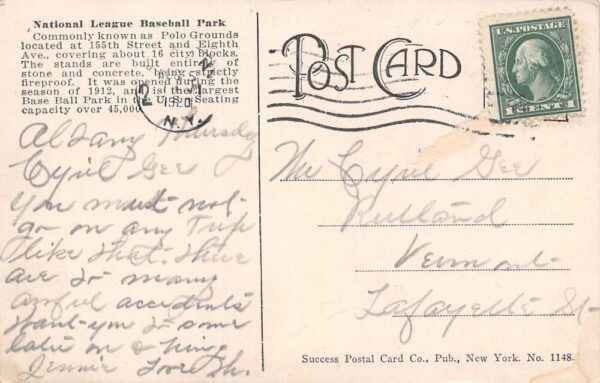 National League Baseball Park
Commonly known as Polo Grounds
located at 155th Street and Eighth
Ave., covering about 16 city blocks.
The stands are built entirely of
stone and concrete, being strictly
fireproof. It was opened during the
season of 1912, and is the largest
Base Ball Park in the U.S. Seating
capacity over 45,000.
Albany Thursday
Cyril Gee
You must not
go on any Trip
like that. There
are so many
awful accidents
want you to come
later on &
Jennie Love
POST CARD
U.S. POSTAGE
1 CENT 1
1920
N.Y.
Mr Cyril Gee
Rutland
Vermont
Lafayette St
Success Postal Card Co., Pub., New York. No. 1148.